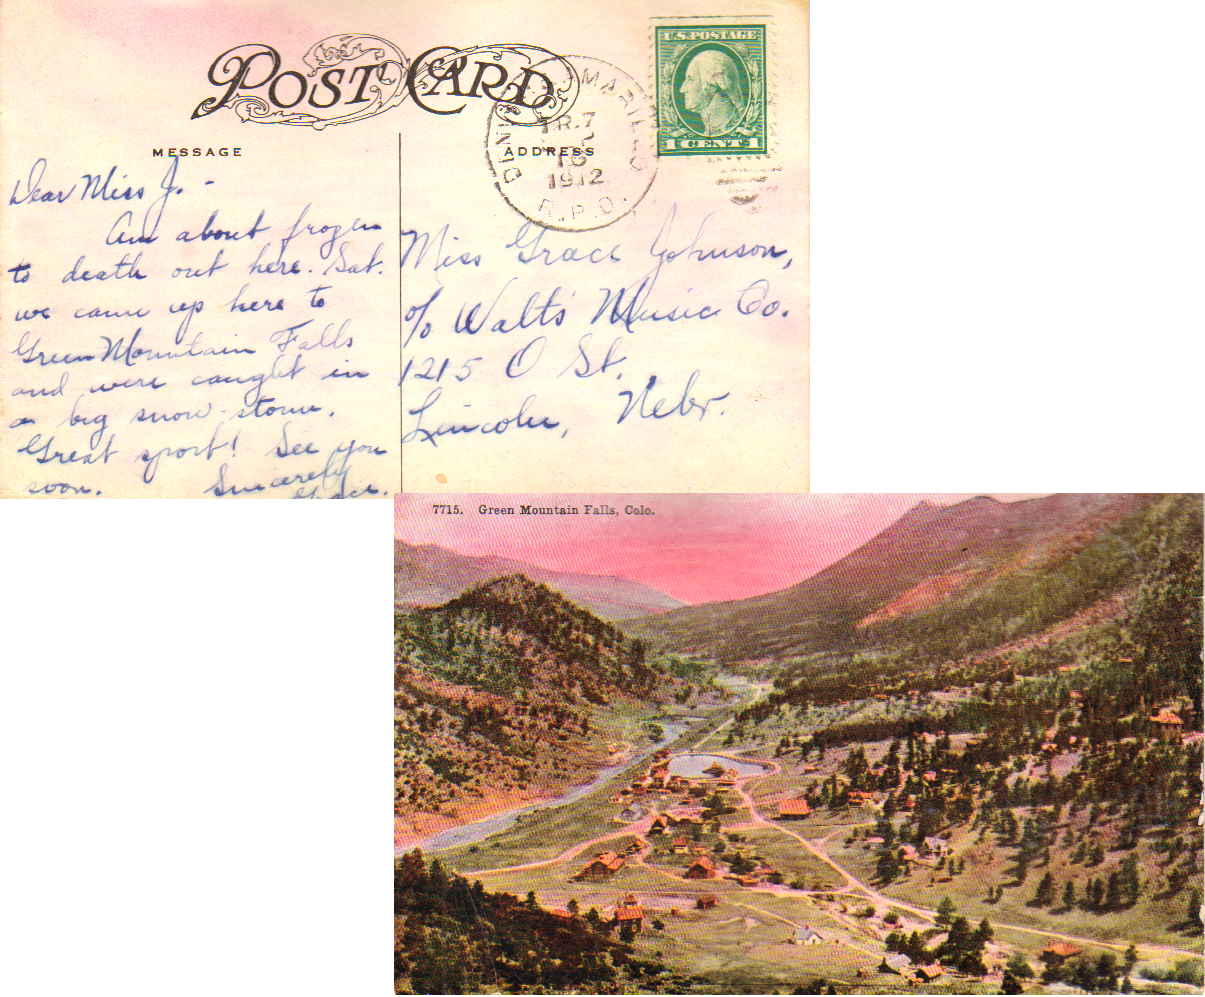 POST CARD
MESSAGE
ADDRESS
U.S. POSTAGE
1 CENT 1
TR.7
1912
R.P.O.
Dear Miss J. -
Am about frozen
to death out here. Sat.
we came up here to
Green Mountain Falls
and were caught in
a big snow-storm.
Great sport! See you
soon. Sincerely
Miss Grace Johnson,
c/o Walt's Music Co.
1215 O St.
Lincoln, Nebr.
7715. Green Mountain Falls, Colo.